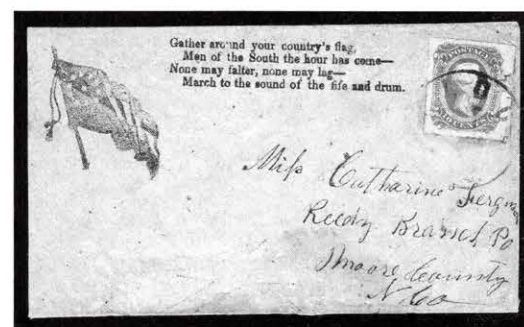 Gather around your country's flag,
Men of the South the hour has come—
None may falter, none may lag—
March to the sound of the fife and drum.
POSTAGE
TEN CENTS
Miss Catharine Fergus
Reedy Branch Po
Moore County
N. Ca